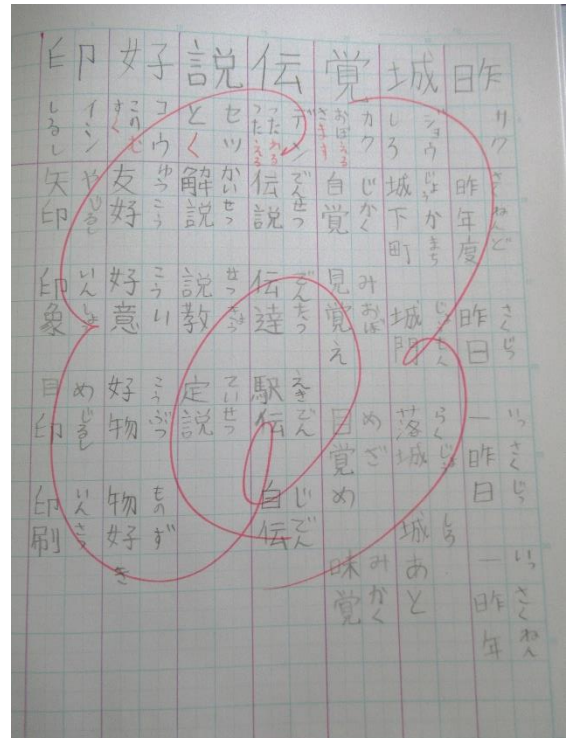 昨 サク 昨年度 さくねんど 昨日 さくじつ 一昨日 いっさくじつ 一昨年 いっさくねん
城 ジョウ しろ 城下町 じょうかまち 城門 じょうもん 落城 らくじょう 城あと しろ
覚 カク おぼえる さます 自覚 じかく 見覚え みおぼ 目覚め めざ 味覚 みかく
伝 デン つたわる つたえる 伝説 でんせつ 伝達 でんたつ 駅伝 えきでん 自伝 じでん
説 セツ とく 解説 かいせつ 説教 せっきょう 定説 ていせつ
好 コウ このむ すく 友好 ゆうこう 好意 こうい 好物 こうぶつ 物好き ものず
印 イン しるし 矢印 やじるし 印象 いんしょう 目印 めじるし 印刷 いんさつ